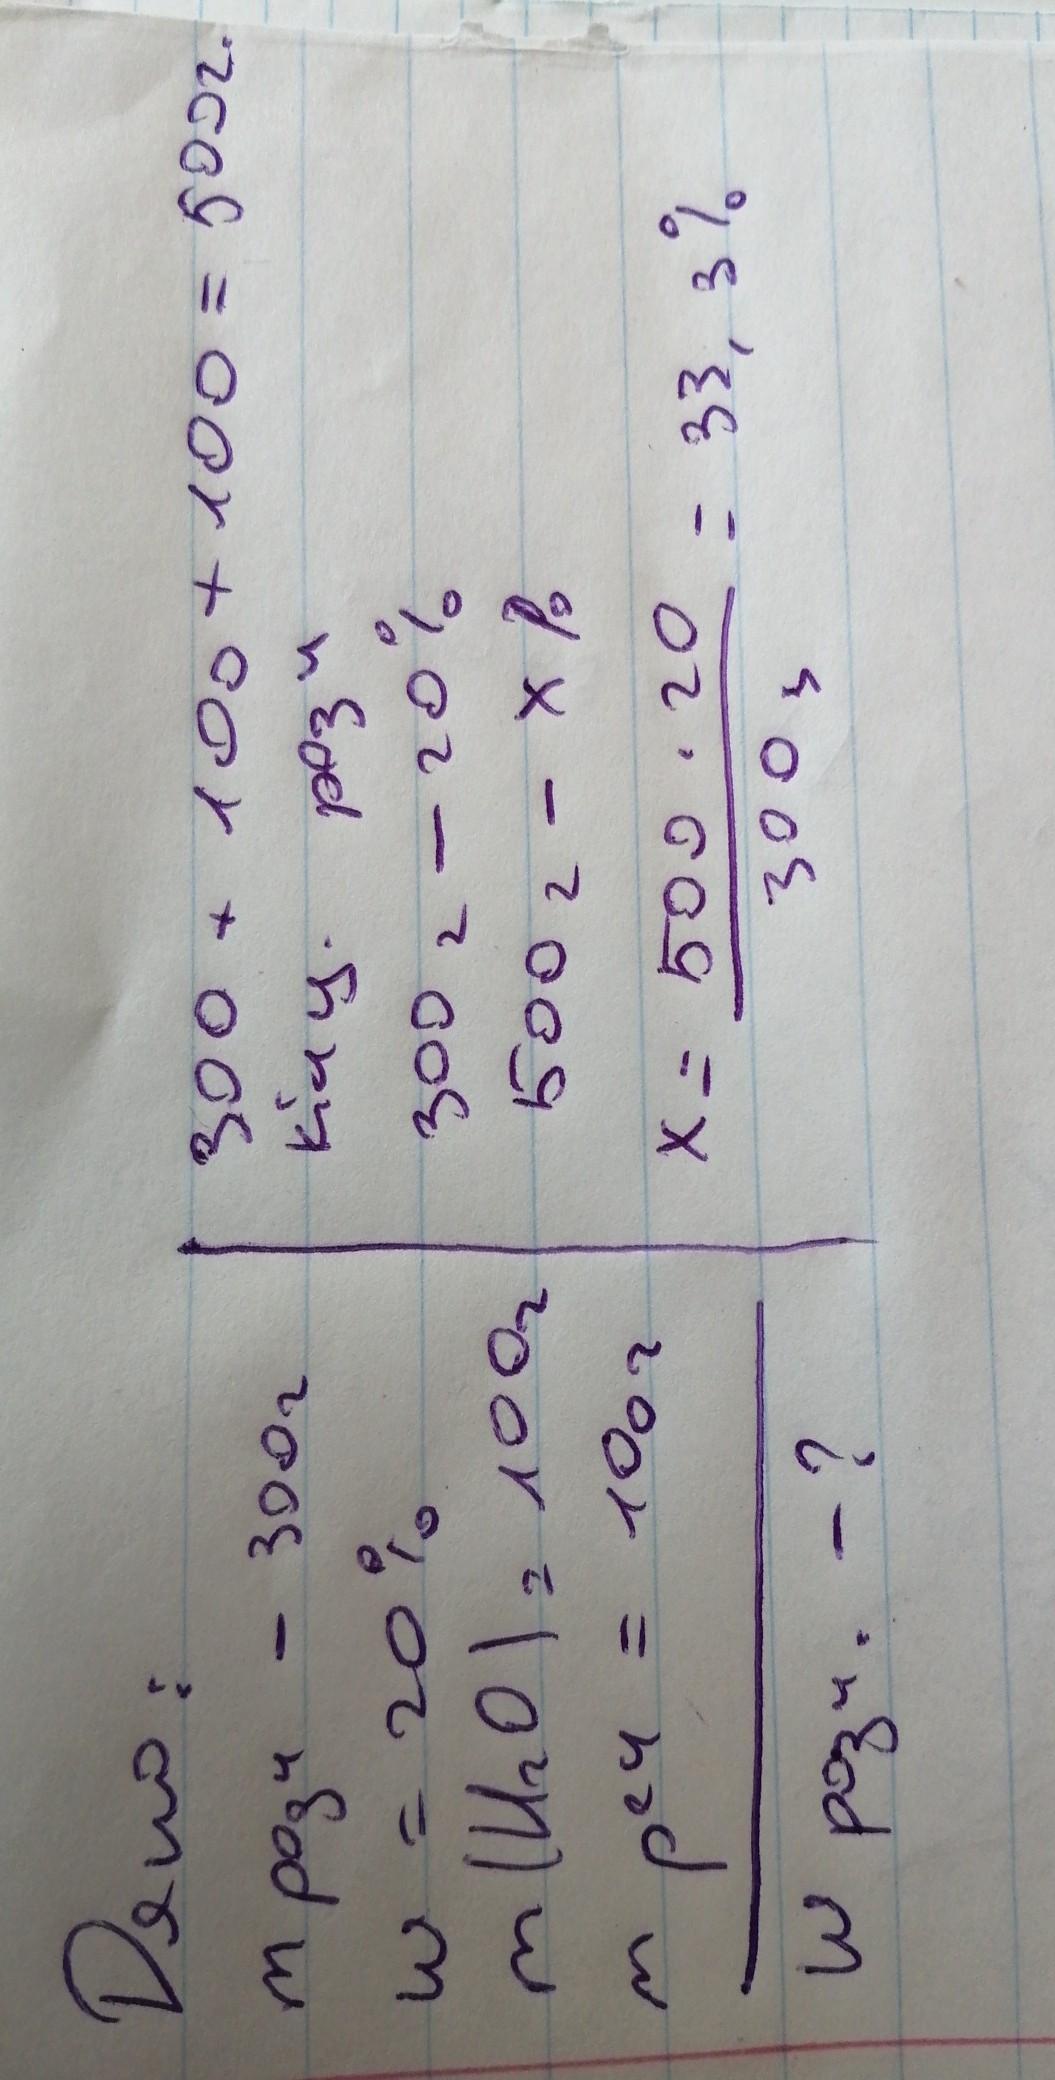 Дано:
m розч - 300г
w = 20%
m(H₂O) = 100г
m р-ч = 100г
w розч. - ?
300 + 100 + 100 = 500г.
кінц. розч
300г - 20%
500г - x%
x = 500 · 20 = 33,3%
300